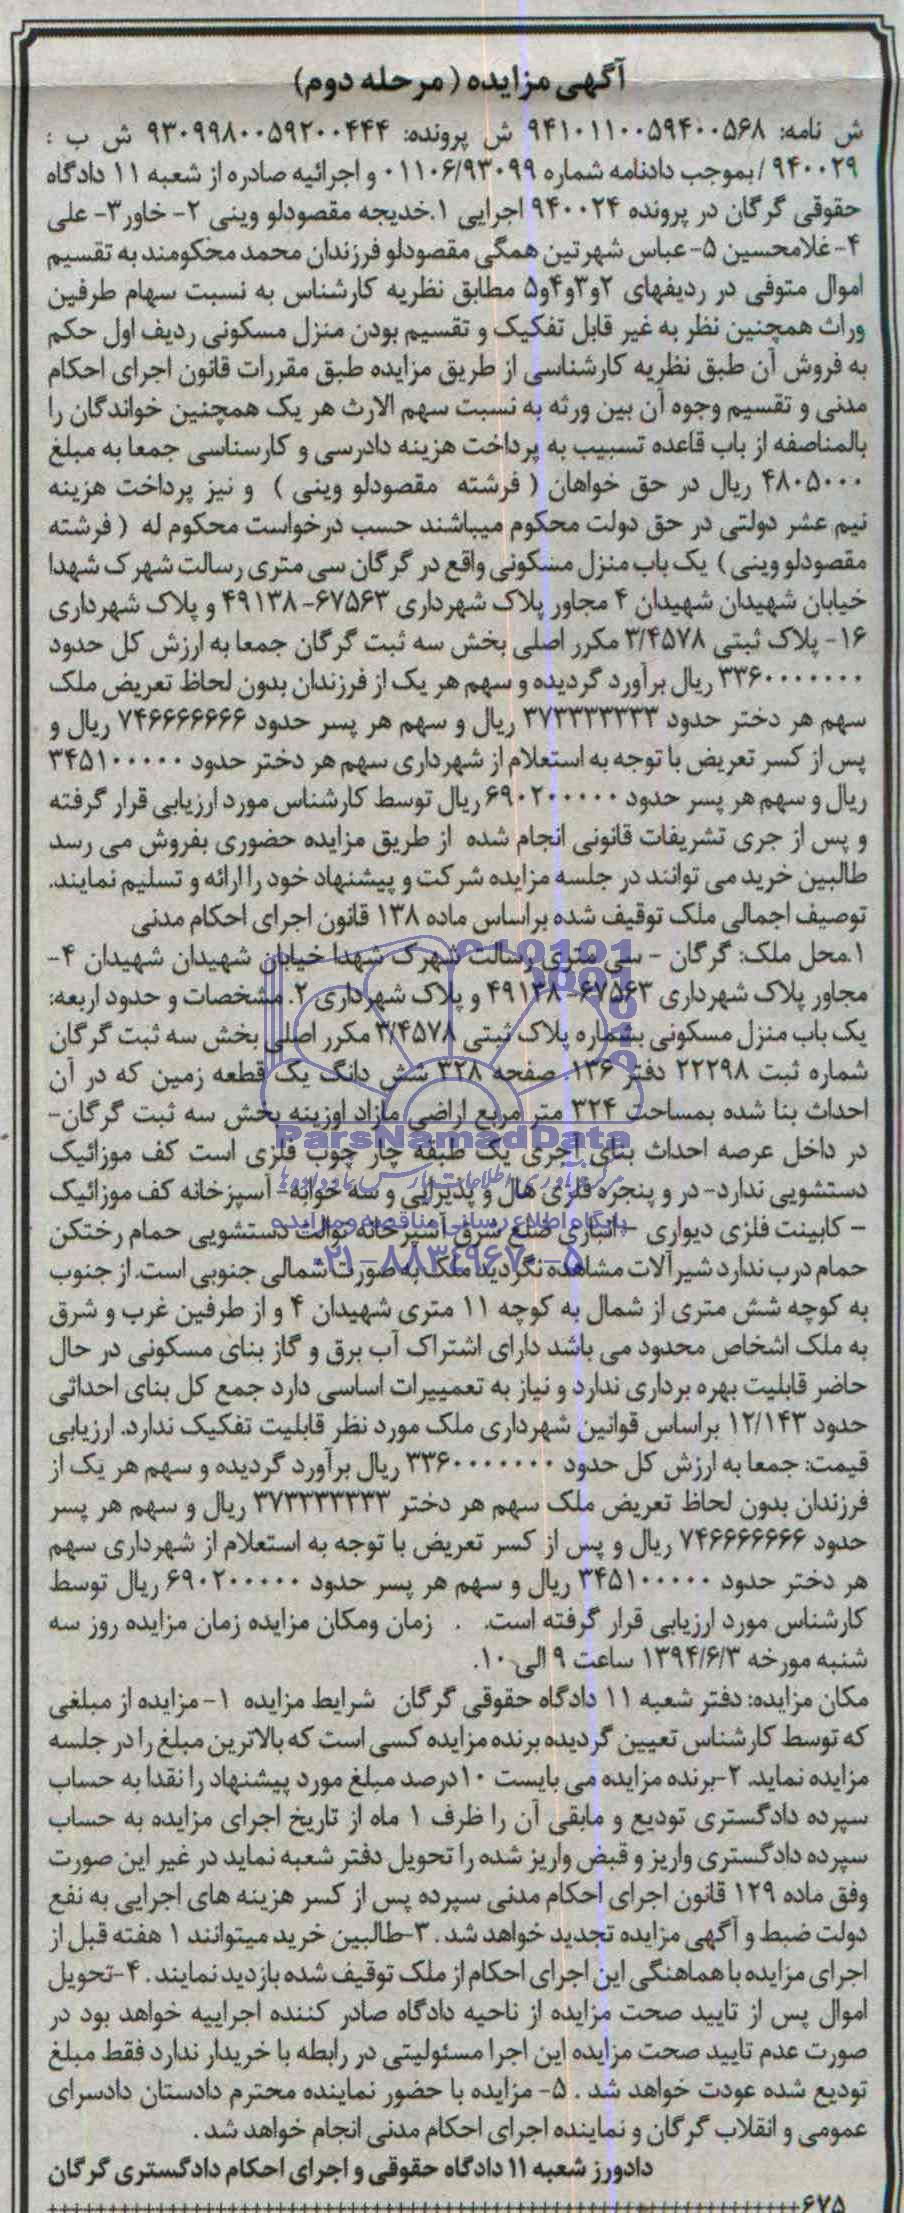 آگهی مزایده (مرحله دوم)
ش نامه: ۹۴۱۰۱۱۰۰۵۹۴۰۰۵۶۸ ش پرونده: ۹۳۰۹۹۸۰۰۵۹۲۰۰۴۴۴ ش ب :
۹۴۰۰۲۹ / بموجب دادنامه شماره ۰۱۱۰۶/۹۳۰۹۹ و اجرائیه صادره از شعبه ۱۱ دادگاه
حقوقی گرگان در پرونده ۹۴۰۰۲۴ اجرایی ۱.خدیجه مقصودلو وینی ۲- خاور۳- علی
۴- غلامحسین ۵- عباس شهرتین همگی مقصودلو فرزندان محمد محکومند به تقسیم
اموال متوفی در ردیفهای ۲و۳و۴و۵ مطابق نظریه کارشناس به نسبت سهام طرفین
وراث همچنین نظر به غیر قابل تفکیک و تقسیم بودن منزل مسکونی ردیف اول حکم
به فروش آن طبق نظریه کارشناسی از طریق مزایده طبق مقررات قانون اجرای احکام
مدنی و تقسیم وجوه آن بین ورثه به نسبت سهم الارث هر یک همچنین خواندگان را
بالمناصفه از باب قاعده تسبیب به پرداخت هزینه دادرسی و کارسناسی جمعا به مبلغ
۴۸۰۵۰۰۰ ریال در حق خواهان ( فرشته مقصودلو وینی ) و نیز پرداخت هزینه
نیم عشر دولتی در حق دولت محکوم میباشند حسب درخواست محکوم له ( فرشته
مقصودلو وینی ) یک باب منزل مسکونی واقع در گرگان سی متری رسالت شهرک شهدا
خیابان شهیدان شهیدان ۴ مجاور پلاک شهرداری ۶۷۵۶۳- ۴۹۱۳۸ و پلاک شهرداری
۱۶- پلاک ثبتی ۳/۴۵۷۸ مکرر اصلی بخش سه ثبت گرگان جمعا به ارزش کل حدود
۳۳۶۰۰۰۰۰۰۰ ریال برآورد گردیده و سهم هر یک از فرزندان بدون لحاظ تعریض ملک
سهم هر دختر حدود ۳۷۳۳۳۳۳۳۳ ریال و سهم هر پسر حدود ۷۴۶۶۶۶۶۶۶ ریال و
پس از کسر تعریض با توجه به استعلام از شهرداری سهم هر دختر حدود ۳۴۵۱۰۰۰۰۰
ریال و سهم هر پسر حدود ۶۹۰۲۰۰۰۰۰ ریال توسط کارشناس مورد ارزیابی قرار گرفته
و پس از جری تشریفات قانونی انجام شده از طریق مزایده حضوری بفروش می رسد
طالبین خرید می توانند در جلسه مزایده شرکت و پیشنهاد خود را ارائه و تسلیم نمایند.
توصیف اجمالی ملک توقیف شده براساس ماده ۱۳۸ قانون اجرای احکام مدنی
۱.محل ملک: گرگان - سی متری رسالت شهرک شهدا خیابان شهیدان شهیدان ۴-
مجاور پلاک شهرداری ۶۷۵۶۳- ۴۹۱۳۸ و پلاک شهرداری ۲. مشخصات و حدود اربعه:
یک باب منزل مسکونی بشماره پلاک ثبتی ۳/۴۵۷۸ مکرر اصلی بخش سه ثبت گرگان
شماره ثبت ۲۲۲۹۸ دفتر ۱۳۶. صفحه ۳۲۸ شش دانگ یک قطعه زمین که در آن
احداث بنا شده بمساحت ۳۲۴ متر مربع اراضی مازاد اوزینه بخش سه ثبت گرگان-
ParsNamadData
در داخل عرصه احداث بنای آجری یک طبقه چار چوب فلزی است کف موزائیک
دستشویی ندارد- در و پنجره فلزی هال و پذیرایی و سه خوابه- آسپزخانه کف موزائیک
- کابینت فلزی دیواری - انباری ضلع شرق آشپزخانه توالت دستشویی حمام رختکن
پایگاه اطلاع رسانی مناقصه و مزایده
حمام درب ندارد شیرآلات مشاهده نگردید ملک به صورت شمالی جنوبی است. از جنوب
۰۲۱-۸۸۳۴۹۶۷۰-۵
به کوچه شش متری از شمال به کوچه ۱۱ متری شهیدان ۴ و از طرفین غرب و شرق
به ملک اشخاص محدود می باشد دارای اشتراک آب برق و گاز بنای مسکونی در حال
حاضر قابلیت بهره برداری ندارد و نیاز به تعمییرات اساسی دارد جمع کل بنای احداثی
حدود ۱۲/۱۴۳ براساس قوانین شهرداری ملک مورد نظر قابلیت تفکیک ندارد. ارزیابی
قیمت: جمعا به ارزش کل حدود ۳۳۶۰۰۰۰۰۰۰ ریال برآورد گردیده و سهم هر یک از
فرزندان بدون لحاظ تعریض ملک سهم هر دختر ۳۷۳۳۳۳۳۳۳ ریال و سهم هر پسر
حدود ۷۴۶۶۶۶۶۶۶ ریال و پس از کسر تعریض با توجه به استعلام از شهرداری سهم
هر دختر حدود ۳۴۵۱۰۰۰۰۰ ریال و سهم هر پسر حدود ۶۹۰۲۰۰۰۰۰ ریال توسط
کارشناس مورد ارزیابی قرار گرفته است. . زمان ومکان مزایده زمان مزایده روز سه
شنبه مورخه ۱۳۹۴/۶/۳ ساعت ۹ الی ۱۰.
مکان مزایده: دفتر شعبه ۱۱ دادگاه حقوقی گرگان شرایط مزایده ۱- مزایده از مبلغی
که توسط کارشناس تعیین گردیده برنده مزایده کسی است که بالاترین مبلغ را در جلسه
مزایده نماید. ۲-برنده مزایده می بایست ۱۰درصد مبلغ مورد پیشنهاد را نقدا به حساب
سپرده دادگستری تودیع و مابقی آن را ظرف ۱ ماه از تاریخ اجرای مزایده به حساب
سپرده دادگستری واریز و قبض واریز شده را تحویل دفتر شعبه نماید در غیر این صورت
وفق ماده ۱۲۹ قانون اجرای احکام مدنی سپرده پس از کسر هزینه های اجرایی به نفع
دولت ضبط و آگهی مزایده تجدید خواهد شد . ۳-طالبین خرید میتوانند ۱ هفته قبل از
اجرای مزایده با هماهنگی این اجرای احکام از ملک توقیف شده بازدید نمایند . ۴-تحویل
اموال پس از تایید صحت مزایده از ناحیه دادگاه صادر کننده اجراییه خواهد بود در
صورت عدم تایید صحت مزایده این اجرا مسئولیتی در رابطه با خریدار ندارد فقط مبلغ
تودیع شده عودت خواهد شد . ۵- مزایده با حضور نماینده محترم دادستان دادسرای
عمومی و انقلاب گرگان و نماینده اجرای احکام مدنی انجام خواهد شد .
دادورز شعبه ۱۱ دادگاه حقوقی و اجرای احکام دادگستری گرگان
۶۷۵